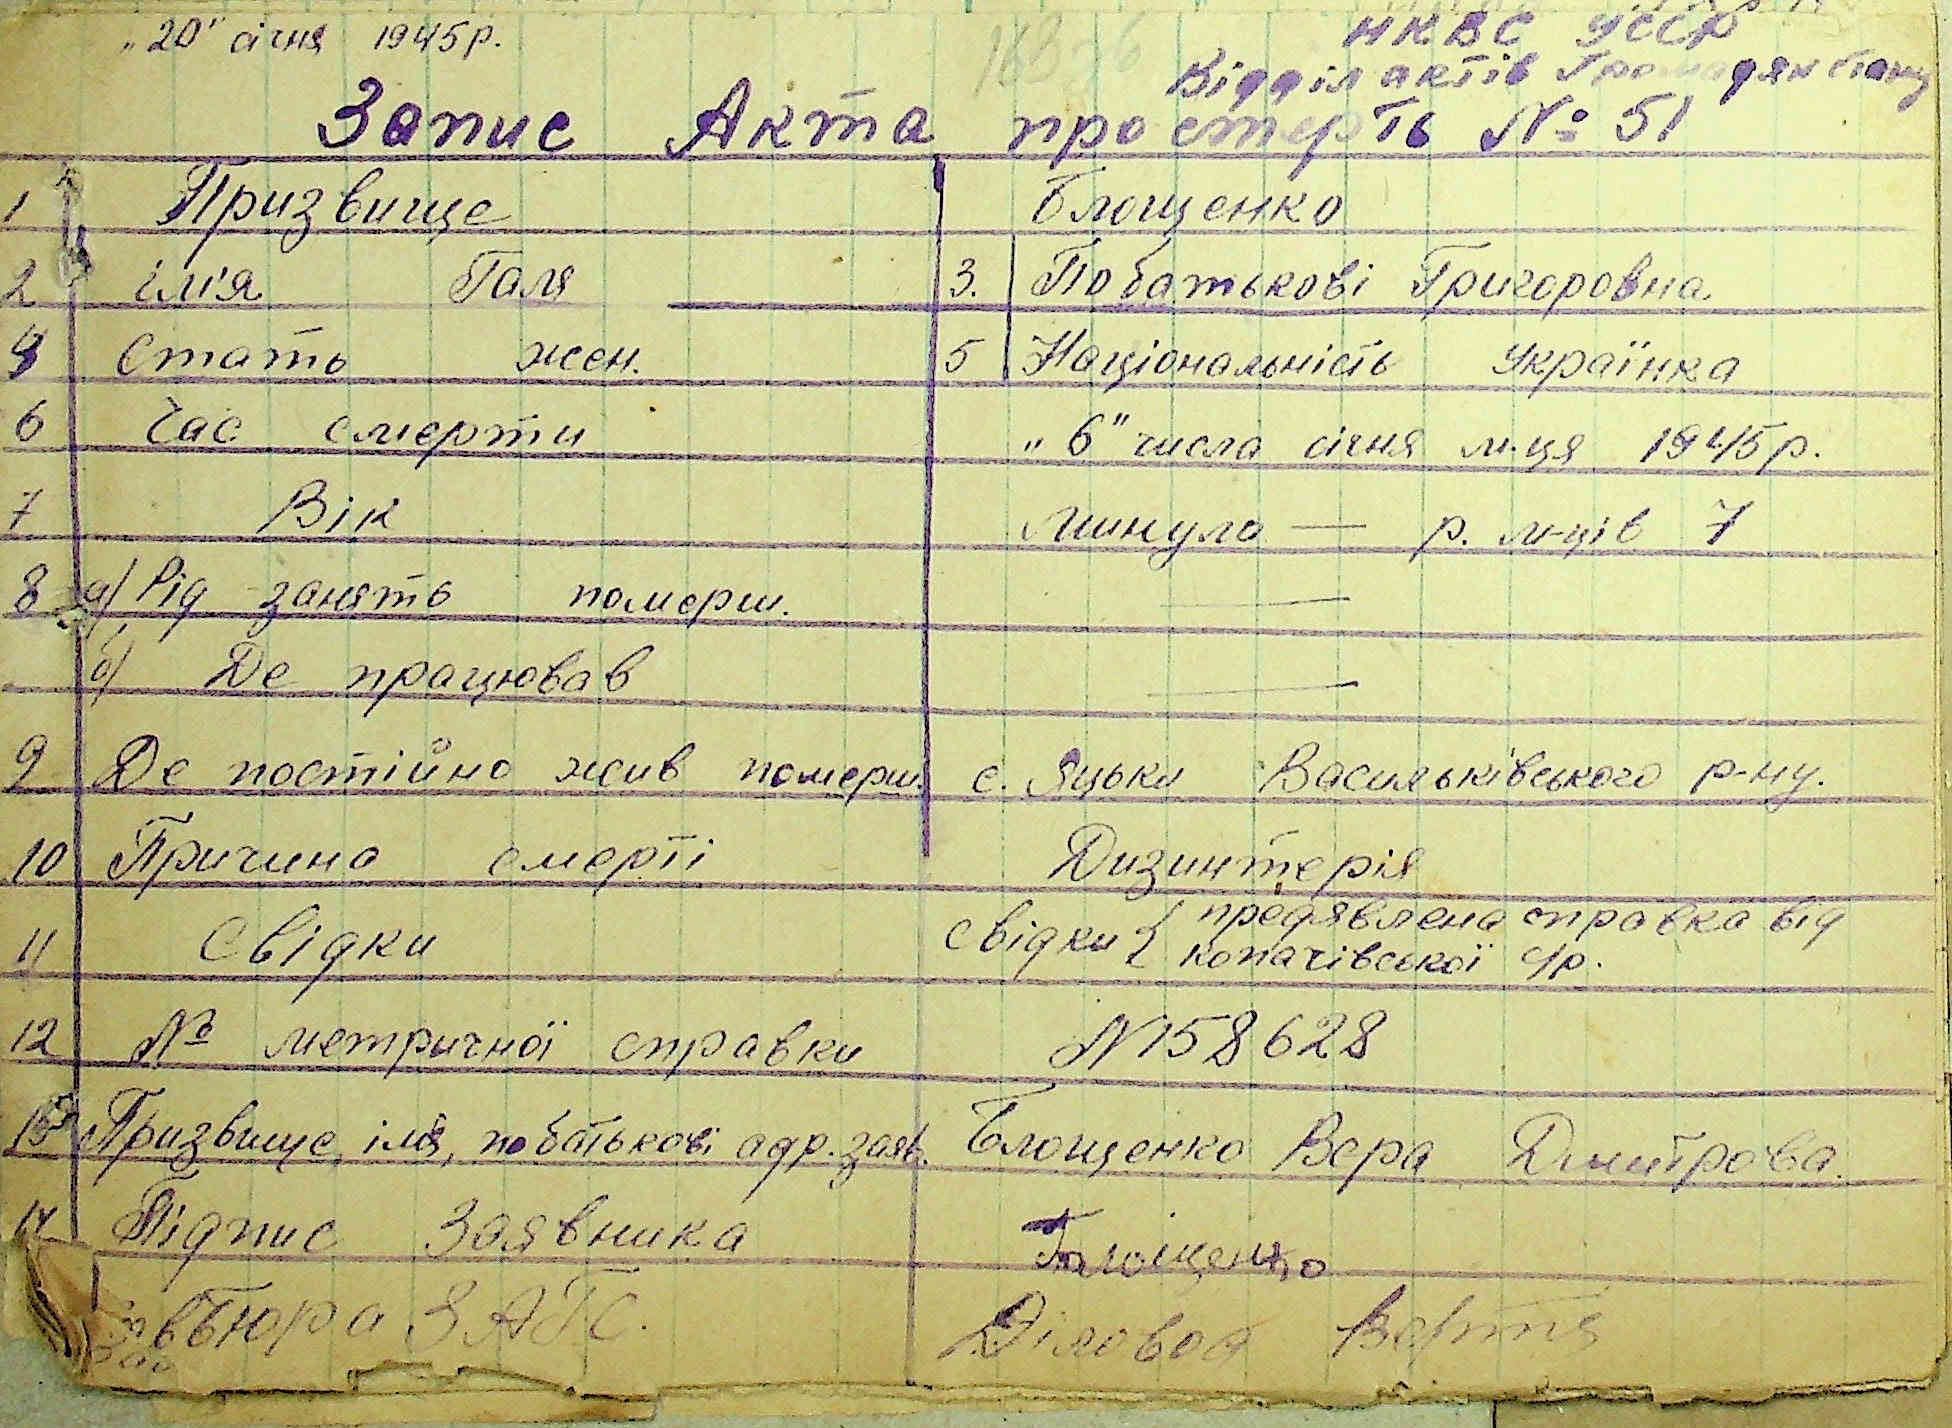 „20" січня 1945р.
НКВС УССР
Відділ актів Громадян стану
Запис Акта про смерть № 51
1 Призвище Блощенко
2 імя Галя 3. Побатькові Григоровна
4 Стать жен. 5 Національність Українка
6 Час смерти „6" числа січня м-ця 1945р.
7 Вік минуло — р. м-ців 7
8 а/ Рід занять померш. —
б/ Де працював —
9 Де постійно жив померш. с. Яцьки Васильківського р-ну.
10 Причина смерті Дизинтерія
11 Свідки Свідки { предявлена справка від
копачівської с/р.
12 № метричної справки N158628
13 Призвище, імя, побатькові адр. заяв. Блощенко Вера Дмитрова.
14 Підпис Заявника Блощенко
бюра ЗАГС. Діловод